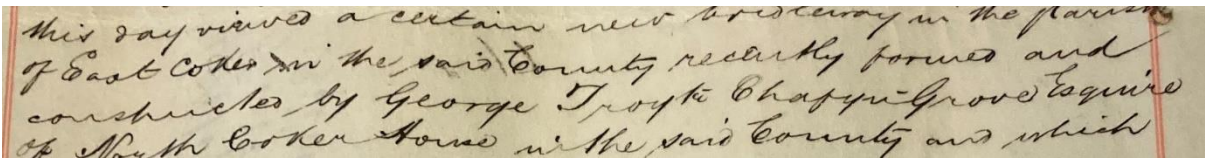 this day viewed a certain new bridleway in the parish
of East Coker in the said County recently formed and
constructed by George Troyte Chafyn Grove Esquire
of North Coker House in the said County and which